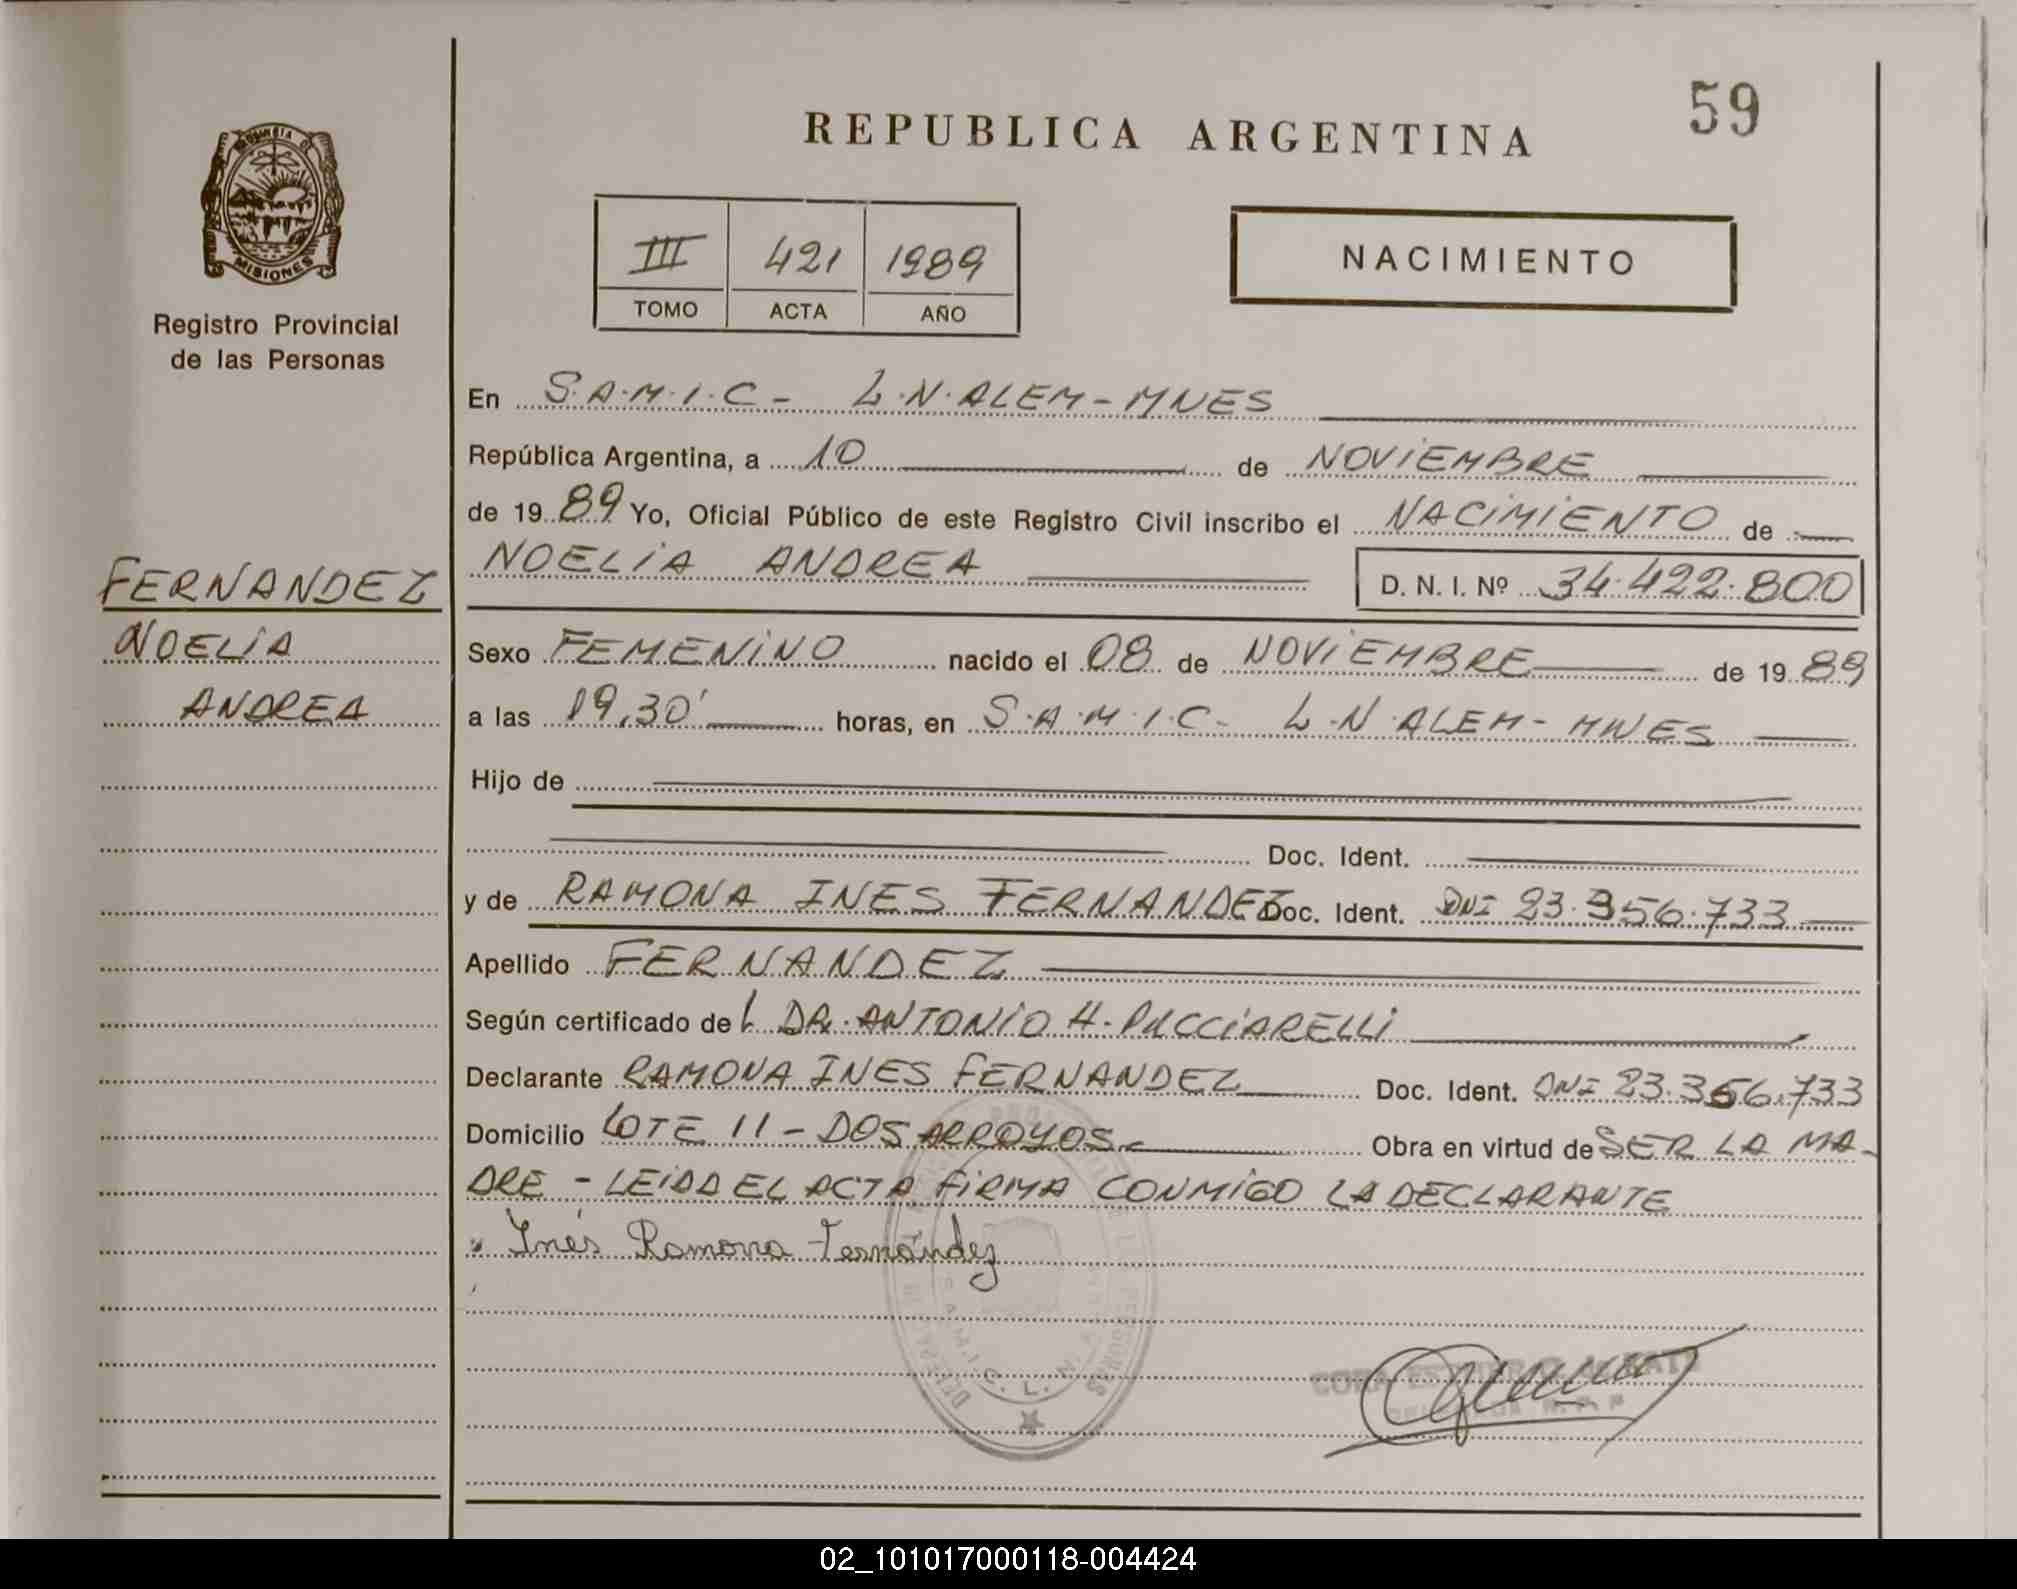 59
REPUBLICA ARGENTINA
PROVINCIA DE
MISIONES
Registro Provincial
de las Personas
III 421 1989
TOMO ACTA AÑO
NACIMIENTO
En S.A.M.I.C - L.N.ALEM-MNES
República Argentina, a 10 de NOVIEMBRE
de 1989 Yo, Oficial Público de este Registro Civil inscribo el NACIMIENTO de
NOELIA ANDREA D. N. I. Nº 34.422.800
FERNANDEZ
NOELIA
ANDREA
Sexo FEMENINO nacido el 08 de NOVIEMBRE de 1989
a las 19,30' horas, en S.A.M.I.C- L.N ALEM- MNES
Hijo de
Doc. Ident.
y de RAMONA INES FERNANDEZ Doc. Ident. DNI 23.356.733
Apellido FERNANDEZ
Según certificado del DR. ANTONIO H. PUCCIARELLI
Declarante RAMONA INES FERNANDEZ Doc. Ident. DNI 23.356.733
Domicilio LOTE 11 - DOS ARROYOS - Obra en virtud de SER LA MA-
DRE - LEIDA EL ACTA FIRMA CONMIGO LA DECLARANTE
Inés Ramona Fernández
02_101017000118-004424